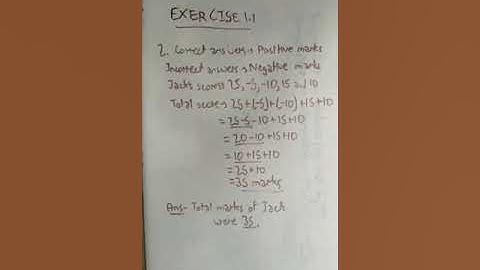 EXERCISE 1.1
2. Correct answers → Positive marks
Incorrect answers → Negative marks
Jack's scores 25, -5, -10, 15 and 10
Total score = 25 + (-5) + (-10) + 15 + 10
= 25 - 5 - 10 + 15 + 10
= 20 - 10 + 15 + 10
= 10 + 15 + 10
= 25 + 10
= 35 marks
Ans - Total marks of Jack
were 35.